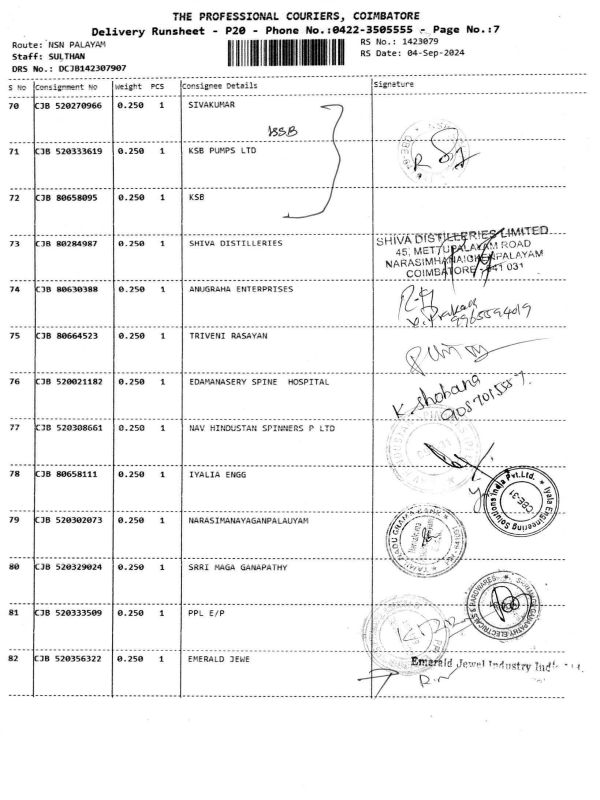 THE PROFESSIONAL COURIERS, COIMBATORE
Delivery Runsheet - P20 - Phone No.:0422-3505555 - Page No.:7
Route: NSN PALAYAM
RS No.: 1423079
Staff: SULTHAN
RS Date: 04-Sep-2024
DRS No.: DCJB142307907
S No Consignment No Weight PCS Consignee Details Signature
70 CJB 520270966 0.250 1 SIVAKUMAR
KSB
71 CJB 520333619 0.250 1 KSB PUMPS LTD
72 CJB 80658095 0.250 1 KSB
73 CJB 80284987 0.250 1 SHIVA DISTILLERIES
SHIVA DISTILLERIES LIMITED
45, METTUPALAYAM ROAD
NARASIMHANAICKENPALAYAM
COIMBATORE - 641 031
74 CJB 80630388 0.250 1 ANUGRAHA ENTERPRISES
Prakash
9965594019
75 CJB 80664523 0.250 1 TRIVENI RASAYAN
76 CJB 520021182 0.250 1 EDAMANASERY SPINE HOSPITAL
K. Shobana
9087015557.
77 CJB 520308661 0.250 1 NAV HINDUSTAN SPINNERS P LTD
78 CJB 80658111 0.250 1 IYALIA ENGG
Iyalia Engineering Solutions India Pvt.Ltd.
CBE-31
79 CJB 520302073 0.250 1 NARASIMANAYAGANPALAUYAM
80 CJB 520329024 0.250 1 SRRI MAGA GANAPATHY
81 CJB 520333509 0.250 1 PPL E/P
82 CJB 520356322 0.250 1 EMERALD JEWE
Emerald Jewel Industry